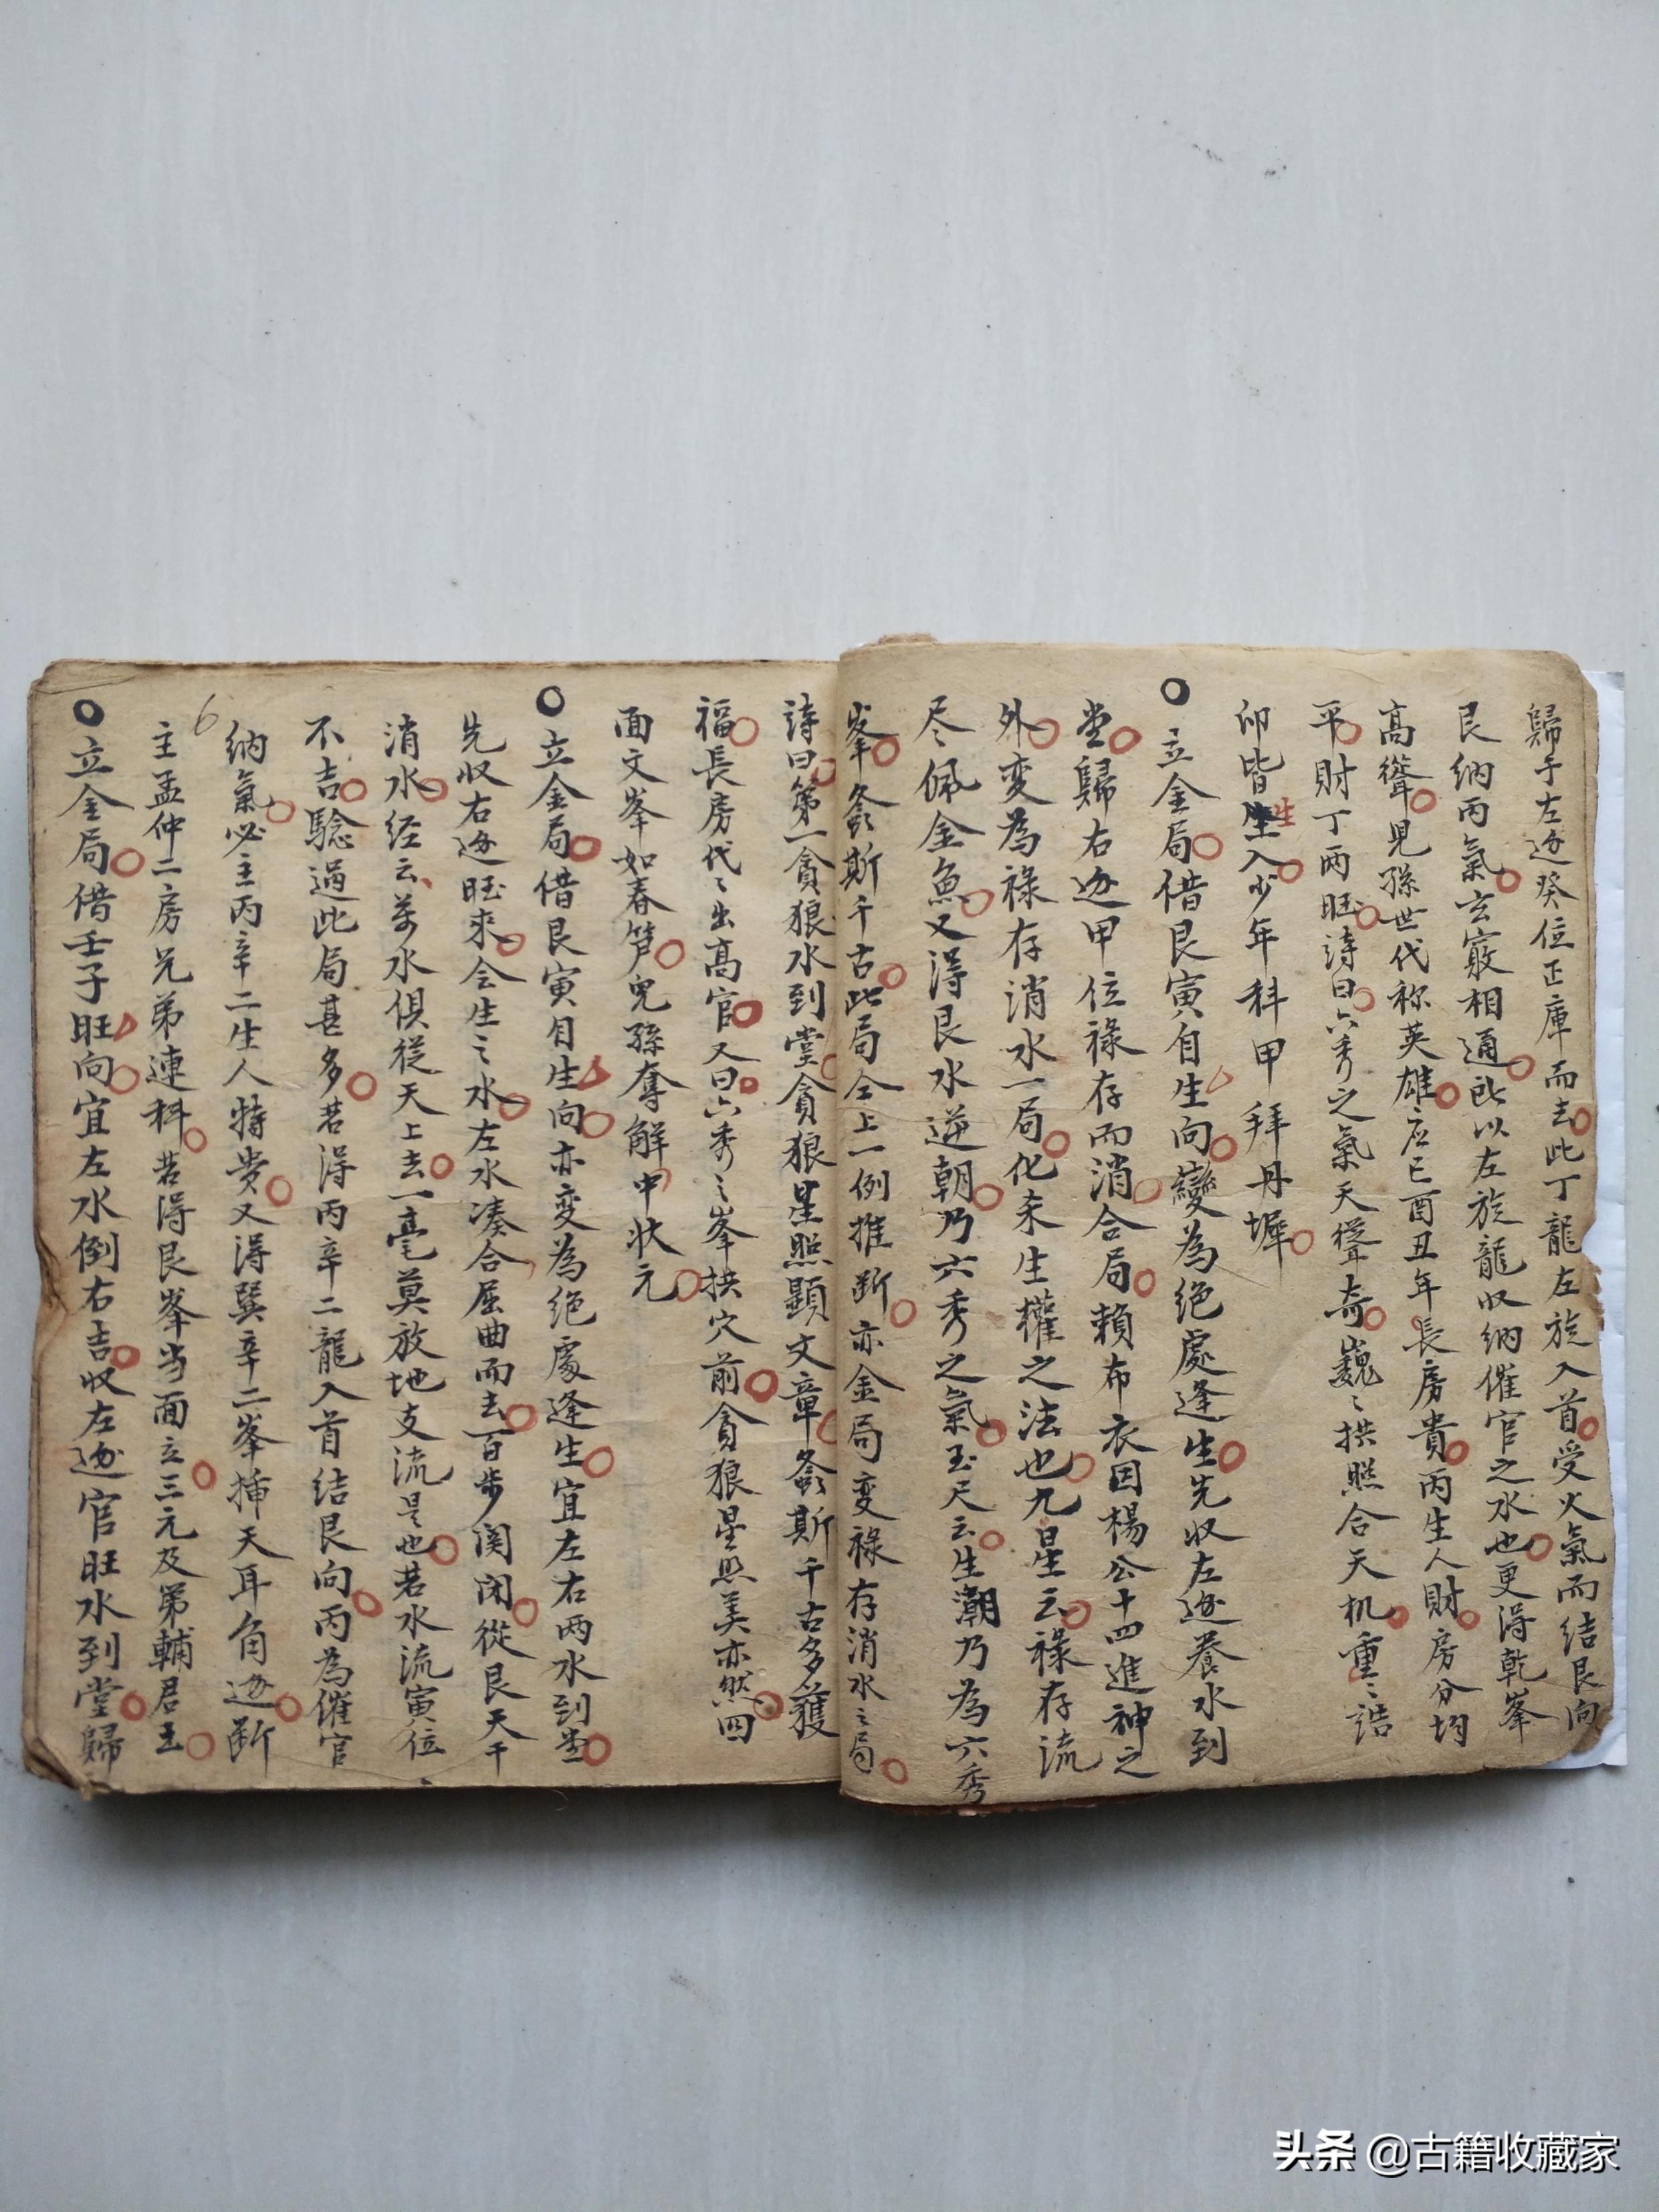 歸于左边癸位正庫而去此丁龍左旋入首受火氣而结艮向
艮纳丙氣玄竅相通此以左旋龍収纳催官之水也更得乾峯
高聳見孫世代称英雄应巳酉丑年長房貴丙生人財房分均
平財丁两旺詩曰六秀之氣天聳奇巍〻拱照合天机重〻誥
卯皆生入少年科甲拜丹墀
生
〇立金局借艮寅自生向變為絶處逢生先収左边養水到
堂歸右边甲位禄存而消合局賴布衣因楊公十四進神之
外变為禄存消水一局化未生權之法也九星云禄存流
尽佩金魚又得艮水逆朝乃六秀之氣玉尺云生潮乃為六秀
峯螽斯千古此局仝上一例推断亦金局变禄存消水之局
詩曰第一貪狼水到堂貪狼星照顯文章螽斯千古多獲
福長房代〻出高官又曰六秀之峯拱穴前貪狼星照美亦然四
面文峯如春笋兒孫奪解中状元
〇立金局借艮寅自生向亦变為绝處逢生宜左右两水到堂
先収右边旺来会生之水左水凑合屈曲而去百步関闭從艮天干
消水经云萬水俱從天上去一毫莫放地支流是也若水流寅位
不吉騐過此局甚多若得丙辛二龍入首结艮向丙為催官
6
纳氣必主丙辛二生人特贵又得巽辛二峯挿天耳角边断
主孟仲二房兄弟連科若得艮峯当面立三元及第輔君王
〇立金局借壬子旺向宜左水倒右吉収左边官旺水到堂歸
头条 @古籍收藏家